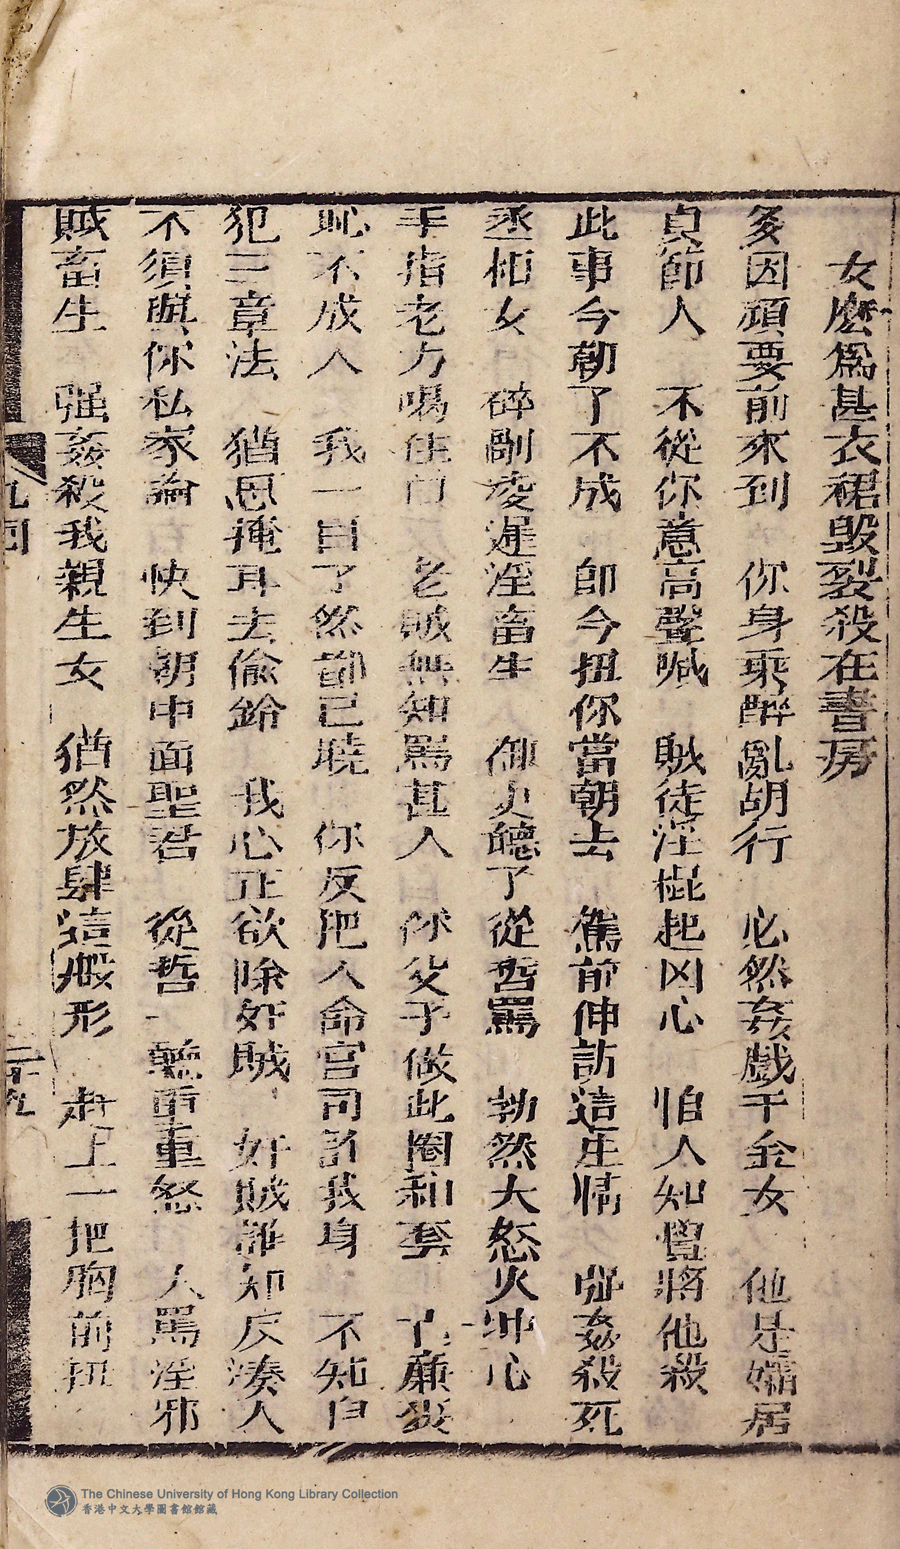 女麽爲甚衣裙毁裂殺在書房
多因頑要前來到　你身乘醉亂胡行　必然姦戲千金女　他是孀居
貞節人　不從你意高聲喊　賊徒淫棍起凶心　怕人知覺將他殺
此事今朝了不成　即今扭你當朝去　駕前伸訴這庄情　強姦殺死
丞相女　碎剮凌遲淫畜生　御史聽了從哲罵　勃然大怒火冲心
手指老方喝住口　老賊無知罵甚人　你父子做此圈和套　廉喪
恥不成人　我一目了然節已曉　你反把人命官司訴我身　不知自
犯三章法　猶思掩耳去偷鈴　我心正欲除奸賊　奸賊誰知反湊人
不須與你私家論　快到朝中面聖君　從哲一聽重重怒　大罵淫邪
賊畜生　强姦殺我親生女　猶然放肆這般形　赶上一把胸前扭
二十九
The Chinese University of Hong Kong Library Collection
香港中文大學圖書館館藏